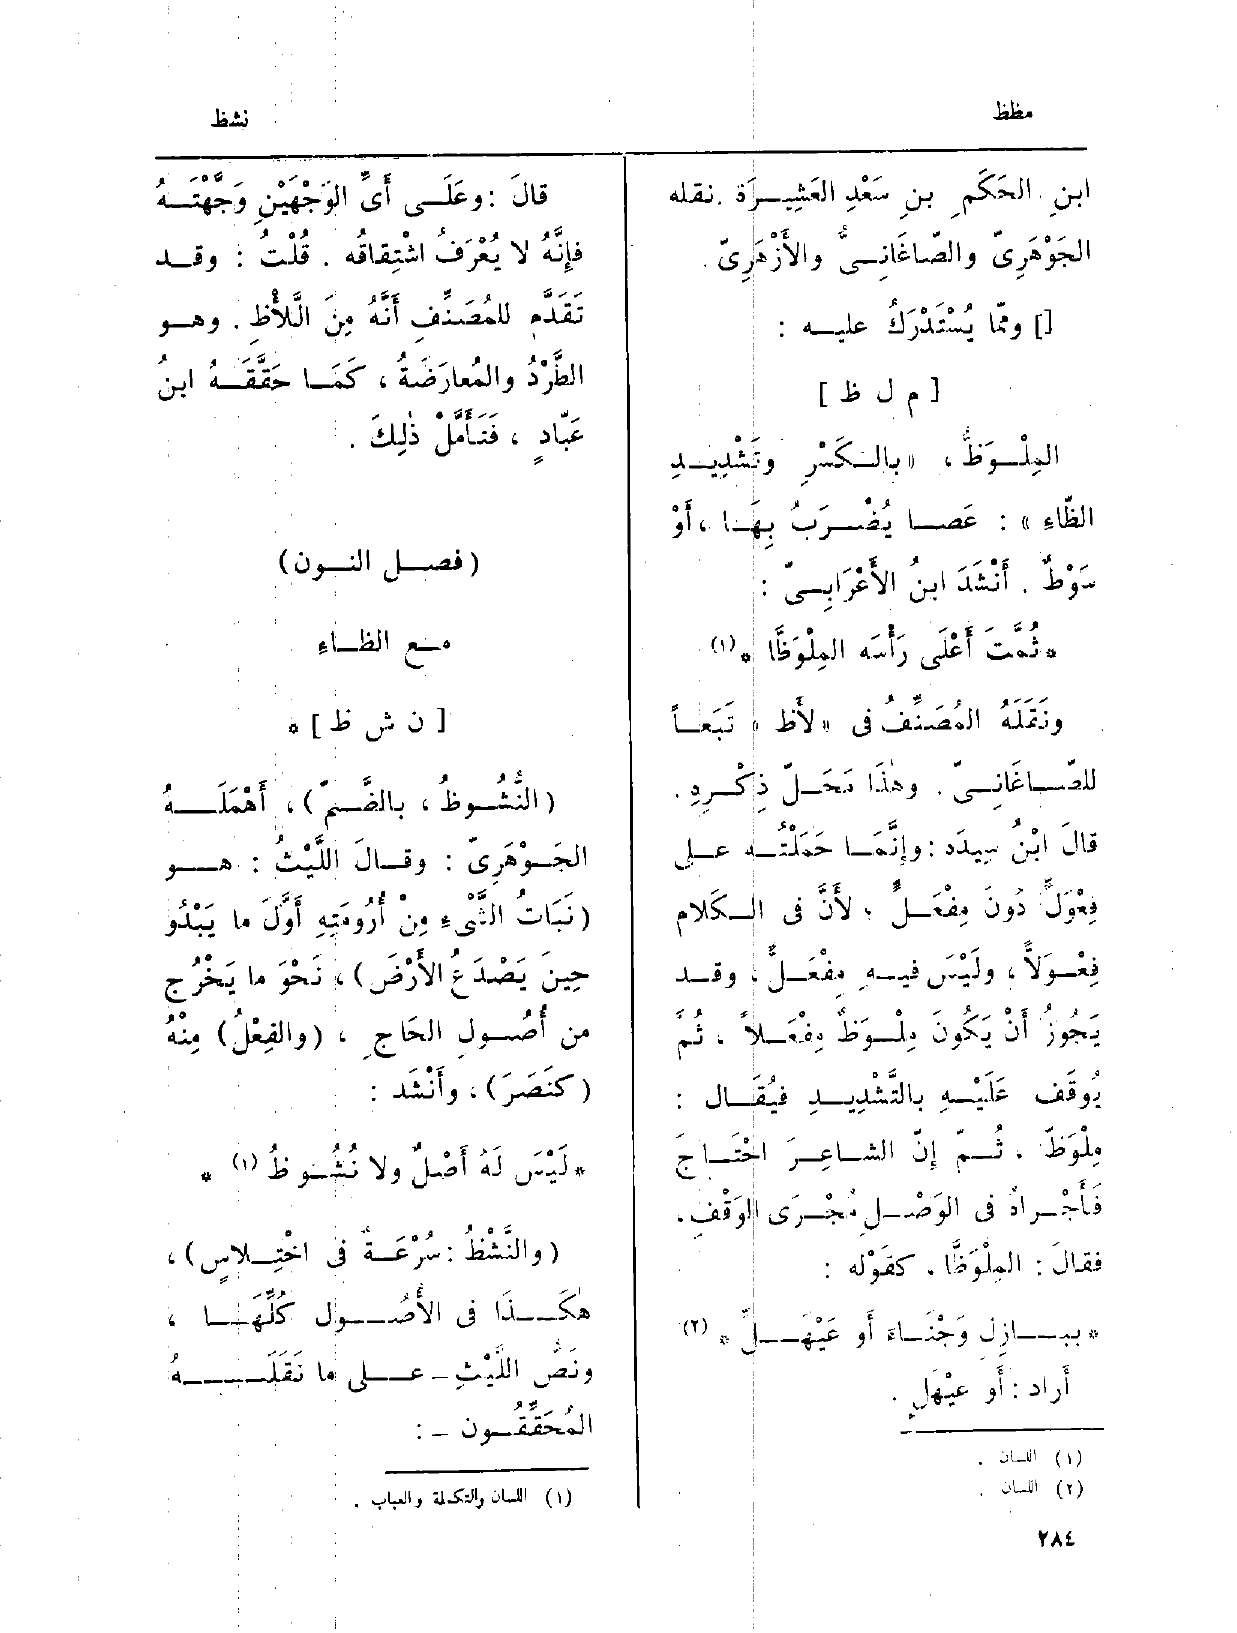 مظظ
نشظ
ابنِ الحَكَمِ بنِ سَعْدِ العَشِيرَة . نقله
الجَوْهَرِىّ والصّاغَانِىُّ والأَزْهَرِىّ .
[] وممّا يُسْتَدْرَكُ عليه :
[ م ل ظ ]
المِلْوَظُّ ، « بالكَسْرِ وتَشْدِيدِ
الظّاءِ » : عَصا يُضْرَبُ بِهَا ، أَوْ
سَوْطٌ . أَنْشَدَ ابنُ الأَعْرَابِىّ :
* ثُمَّتَ أَعْلَى رَأْسَه المِلْوَظَّا * (١)
ونَقَلَهُ المُصَنِّفُ فى « لأَظ » تَبَعاً
للصّاغَانِىّ . وهٰذَا مَحَلّ ذِكْرِهِ .
قالَ ابْنُ سِيدَه : وإِنَّمَا حَمَلْتُه على
فِعْوَلٍّ دُونَ مِفْعَلٍّ ، لأَنَّ فى الكَلَامِ
فِعْوَلاًّ ، ولَيْسَ فيه مِفْعَلٌّ ، وقد
يَجُوزُ أَنْ يَكُونَ مِلْوَظٌ مِفْعَلاً ، ثُمَّ
يُوقَف عَلَيْهِ بالتَّشْدِيدِ فيُقَال :
مِلْوَظّ . ثُمّ إِنّ الشاعِرَ احْتَاجَ
فَأَجْراهُ فى الوَصْلِ مُجْرَى الوَقْفِ .
فقالَ : المِلْوَظَّا . كقَوْله :
* ببازِلٍ وَجْنَاءَ أَو عَيْهَلِّ * (٢)
أَراد : أَو عَيْهَلٍ .
(١) اللسان .
(٢) اللسان .
٢٨٤
قالَ : وعَلَى أَىِّ الوَجْهَيْنِ وَجَّهْتَهُ
فإِنَّهُ لا يُعْرَفُ اشْتِقاقُه . قُلْتُ : وقد
تَقَدَّم للمُصَنِّفِ أَنَّهُ مِنَ الَّلأْظِ . وهو
الطَّرْدُ والمُعارَضَةُ ، كَمَا حَقَّقَهُ ابنُ
عَبّادٍ ، فَتَأَمَّلْ ذٰلِكَ .
(فصل النون)
مع الظاءِ
[ ن ش ظ ] *
(النُّشُوظُ ، بالضَّمّ) ، أَهْمَلَهُ
الجَوْهَرِىّ : وقالَ اللَّيْثُ : هو
(نَبَاتُ الشَّىْءِ مِنْ أُرُومَتِهِ أَوَّلَ ما يَبْدُو
حِينَ يَصْدَعُ الأَرْضَ) ، نَحْوَ ما يَخْرُج
من أُصُولِ الحَاجِ ، (والفِعْلُ) مِنْهُ
(كنَصَرَ) ، وأَنْشَد :
* لَيْسَ لَهُ أَصْلٌ ولا نُشُوظُ (١) *
(والنَّشْظُ : سُرْعَةٌ فى اخْتِلاسٍ) ،
هكذَا فى الأُصُولِ كُلِّهَا ،
ونَصُّ اللَّيْثِ - على ما نَقَلَهُ
المُحَقِّقُون - :
(١) اللسان والتكملة والعباب .